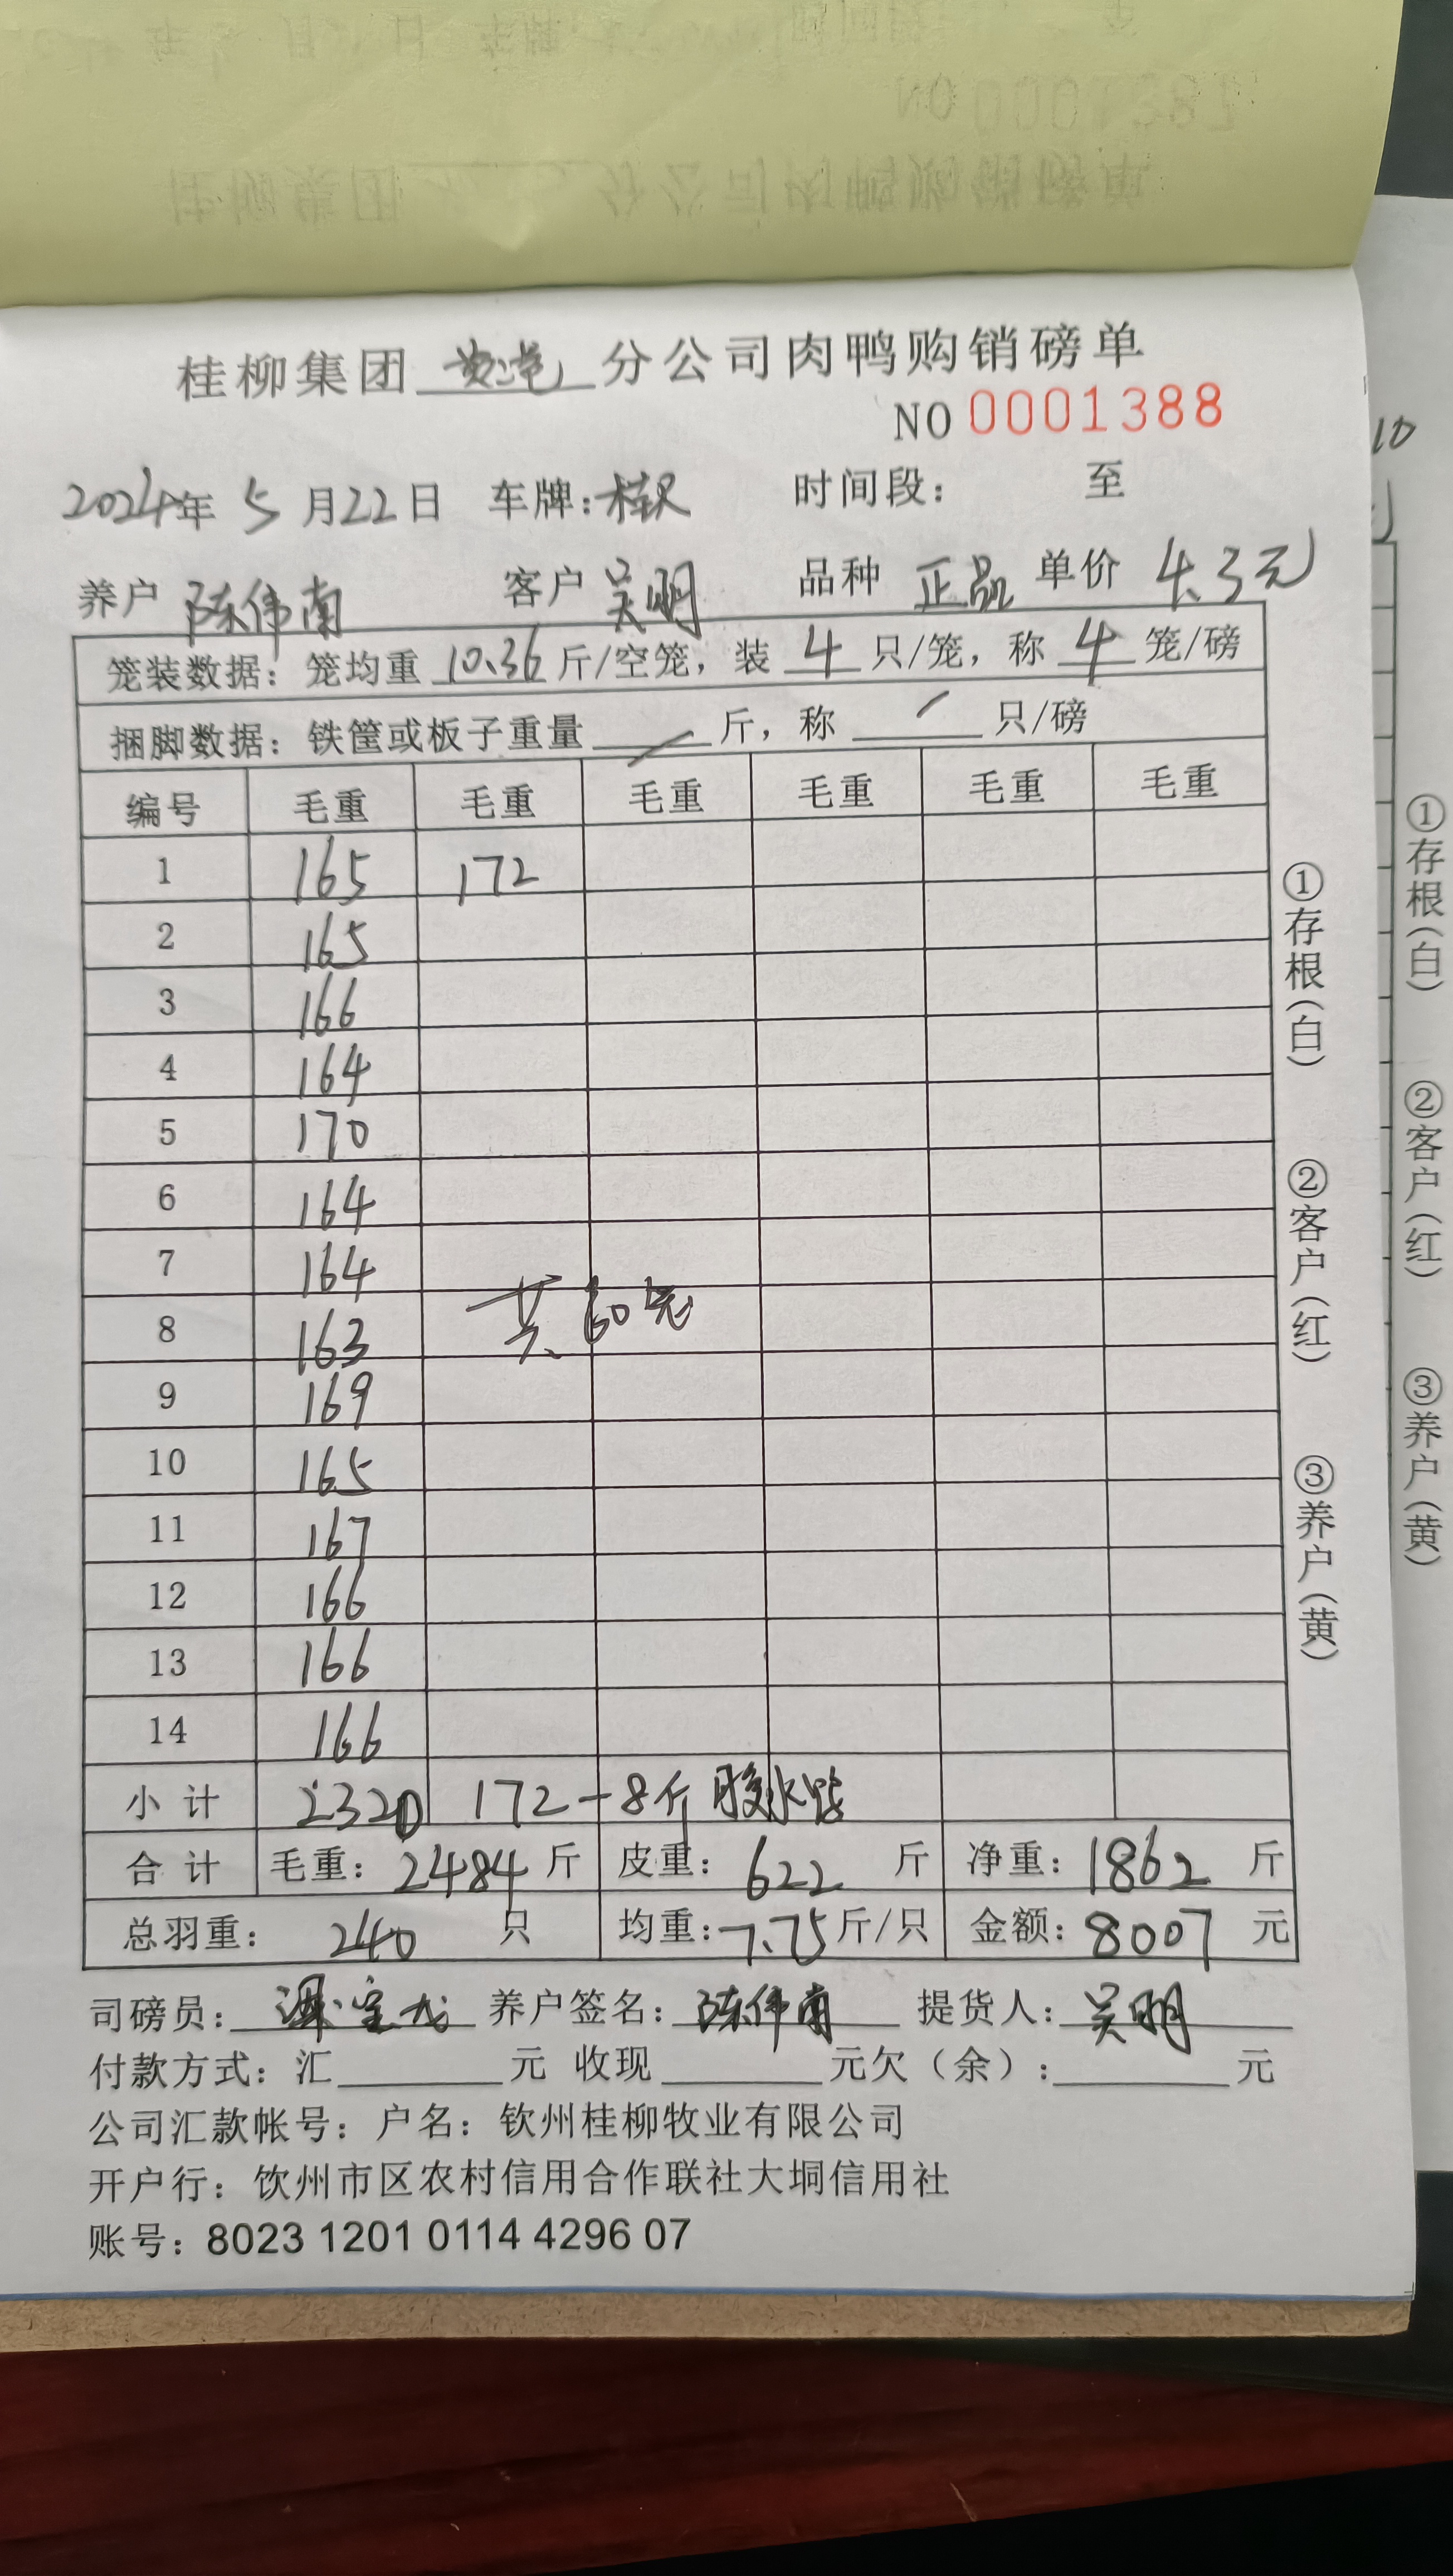 桂柳集团 分公司肉鸭购销磅单
NO 0001388
2024年 5月22日 车牌: 时间段: 至
养户 陈伟南 客户 吴明 品种 正品 单价 4.3元
笼装数据: 笼均重 10.36 斤/空笼, 装 4 只/笼, 称 4 笼/磅
捆脚数据: 铁筐或板子重量 / 斤, 称 / 只/磅
编号 毛重 毛重 毛重 毛重 毛重 毛重
1 165 172
2 165
3 166
4 164
5 170
6 164
7 164
8 163 共60笼
9 169
10 165
11 167
12 166
13 166
14 166
小计 2320 172-8斤胶水
合计 毛重: 2484 斤 皮重: 622 斤 净重: 1862 斤
总羽重: 240 只 均重: 7.75 斤/只 金额: 8007 元
司磅员: 养户签名: 陈伟南 提货人: 吴明
付款方式: 汇 元 收现 元欠(余): 元
公司汇款帐号: 户名: 钦州桂柳牧业有限公司
开户行: 饮州市区农村信用合作联社大垌信用社
账号: 8023 1201 0114 4296 07
①存根(白) ②客户(红) ③养户(黄)
10
①存根(白) ②客户(红) ③养户(黄)